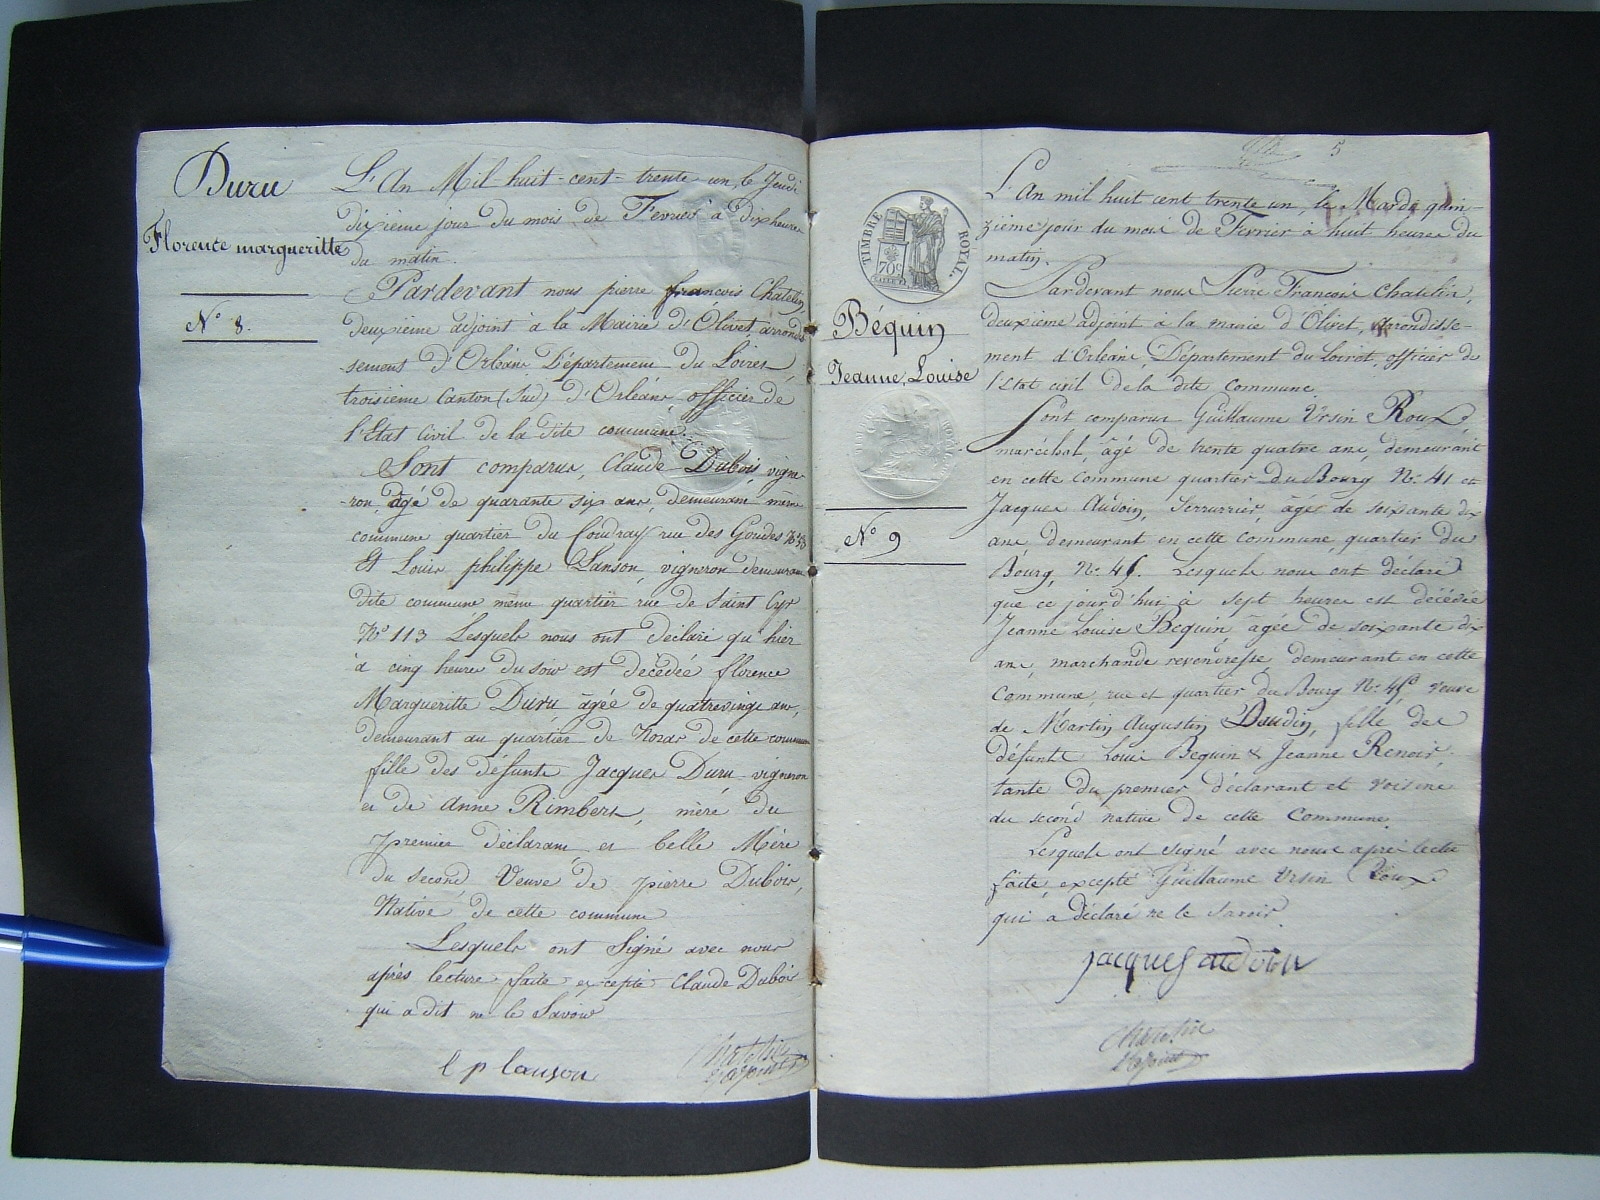 Duru
Florence margueritte
N° 8.
L'An Mil-huit-cent-trente-un, le Jeudi
dixième jour du mois de Fevrier à dix heures
du matin.
Pardevant nous pierre françois Chatelin,
deuxième adjoint à la Mairie d'Olivet, arrondis
sement d'Orléans Département du Loiret,
troisième Canton (Sud) d'Orléans, officier de
l'Etat Civil de la dite commune.
Sont comparus, Claude Dubois, vigne
-ron, âgé de quarante six ans, demeurant même
commune quartier du Coudray rue des Goudes
Et Louis philippe Lanson, vigneron demeurant
dite commune même quartier rue de Saint Cyr
N° 113 Lesquels nous ont déclaré qu'hier
à cinq heures du soir est décédée florence
Margueritte Duru âgée de quatrevingt ans,
demeurant au quartier de de cette commune
fille des défunts Jacques Duru vigneron
et de Anne Rimbert, mère du
premier déclarant et belle Mère
du second, Veuve de pierre Dubois,
Native de cette commune
Lesquels ont Signé avec nous
après lecture faite excepté Claude Dubois
qui a dit ne le Savoir
l p lanson
Chatelin
adjoint
5
TIMBRE ROYAL.
70c
Béquin
Jeanne, Louise
N° 9
L'An mil huit cent trente un, le Mardi quin-
zième jour du mois de Fevrier à huit heures du
matin.
Pardevant nous Pierre François Chatelin,
deuxième adjoint à la mairie d'Olivet, arrondisse-
ment d'Orléans, Département du Loiret, officier de
l'Etat civil de la dite Commune.
Sont comparus Guillaume Ursin Roux,
maréchal, âgé de trente quatre ans, demeurant
en cette Commune quartier du Bourg N° 41 et
Jacques Audoin, Serrurier, âgé de soixante dix
ans, demeurant en cette Commune, quartier du
Bourg, N° 45. Lesquels nous ont déclaré
que ce jourd'hui à sept heures est décédée
Jeanne Louise Bequin, âgée de soixante dix
ans, marchande revendresse demeurant en cette
Commune, rue et quartier du Bourg N° 45 veuve
de Martin Augustin Daudin, fille de
défunts Louis Bequin & Jeanne Renoir,
tante du premier déclarant et voisine
du second native de cette Commune.
Lesquels ont Signé avec nous après lecture
faite, excepté Guillaume Ursin Roux
qui a déclaré ne le Savoir
jacques audoin
Chatelin
adjoint